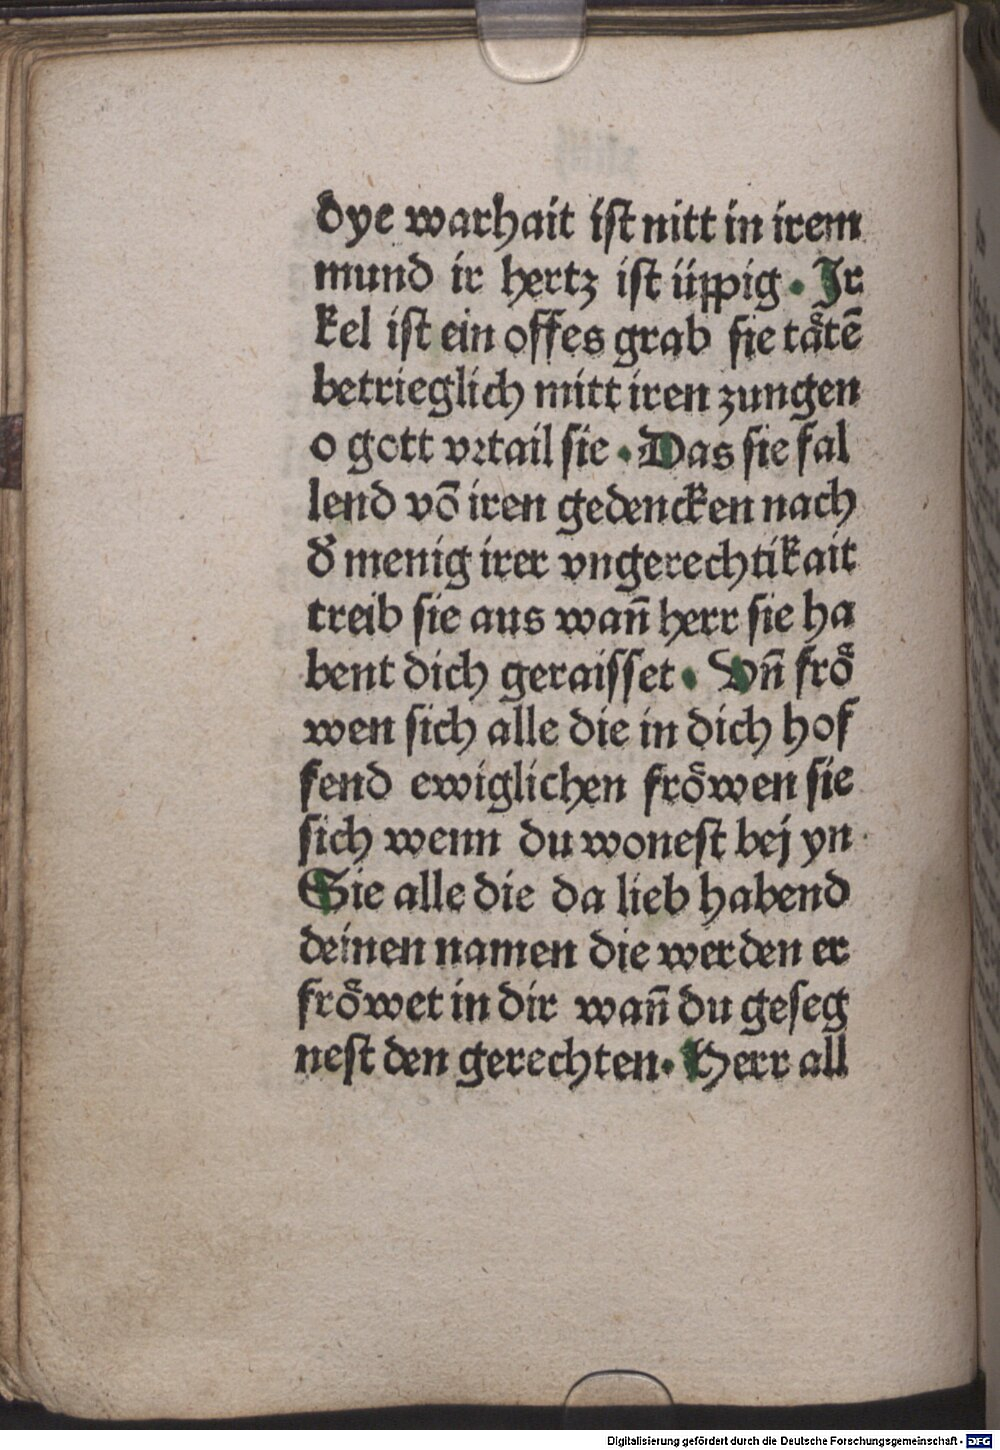 dye warhait ist nitt in irem
mund ir hertz ist üppig . Ir
kel ist ein offes grab sie taͤtē
betrieglich mitt iren zungen
o gott vꝛtail sie . Das sie fal
lend vō iren gedencken nach
d᷑ menig irer vngerechtikait
treib sie aus wañ herr sie ha
bent dich geraisset . Vñ froͤ
wen sich alle die in dich hof
fend ewiglichen froͤwen sie
sich wenn du wonest bej yn .
Sie alle die da lieb habend
deinen namen die werden er
froͤwet in dir wañ du geseg
nest den gerechten . Herr all
Digitalisierung gefördert durch die Deutsche Forschungsgemeinschaft - DFG